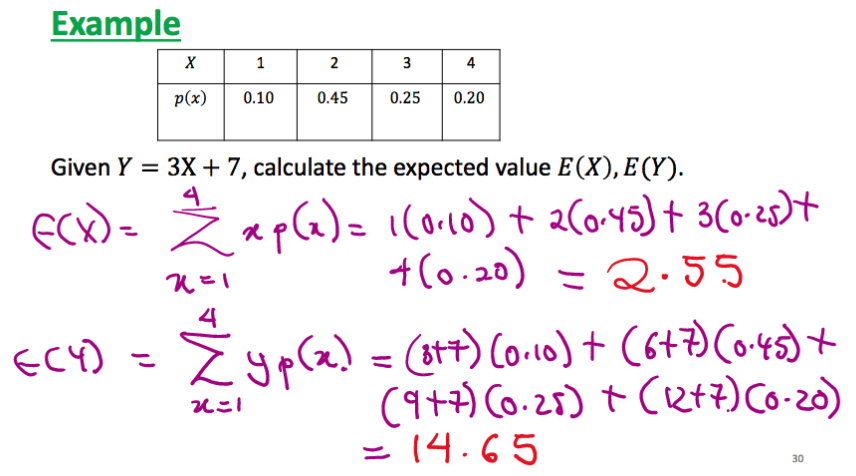 Example
X 1 2 3 4
p(x) 0.10 0.45 0.25 0.20
Given Y = 3X + 7, calculate the expected value E(X), E(Y).
4
E(X) = Σ x p(x) = 1(0.10) + 2(0.45) + 3(0.25) +
x=1
4(0.20) = 2.55
4
E(Y) = Σ y p(x) = (3+7)(0.10) + (6+7)(0.45) +
x=1
(9+7)(0.25) + (12+7)(0.20)
= 14.65
30